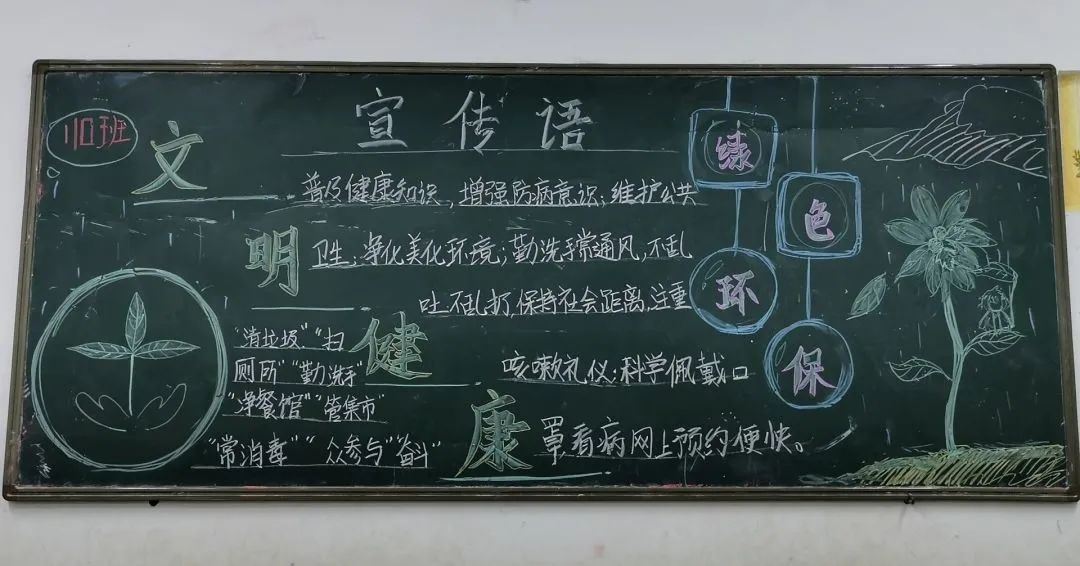 110班
宣传语
文明健康
绿色环保
普及健康知识,增强防病意识;维护公共
卫生;净化美化环境;勤洗手常通风,不乱
吐不乱扔,保持社会距离,注重
咳嗽礼仪;科学佩戴口
罩,看病网上预约便快。
"清垃圾""扫
厕所""勤洗手"
"净餐馆""管集市"
"常消毒""众参与"